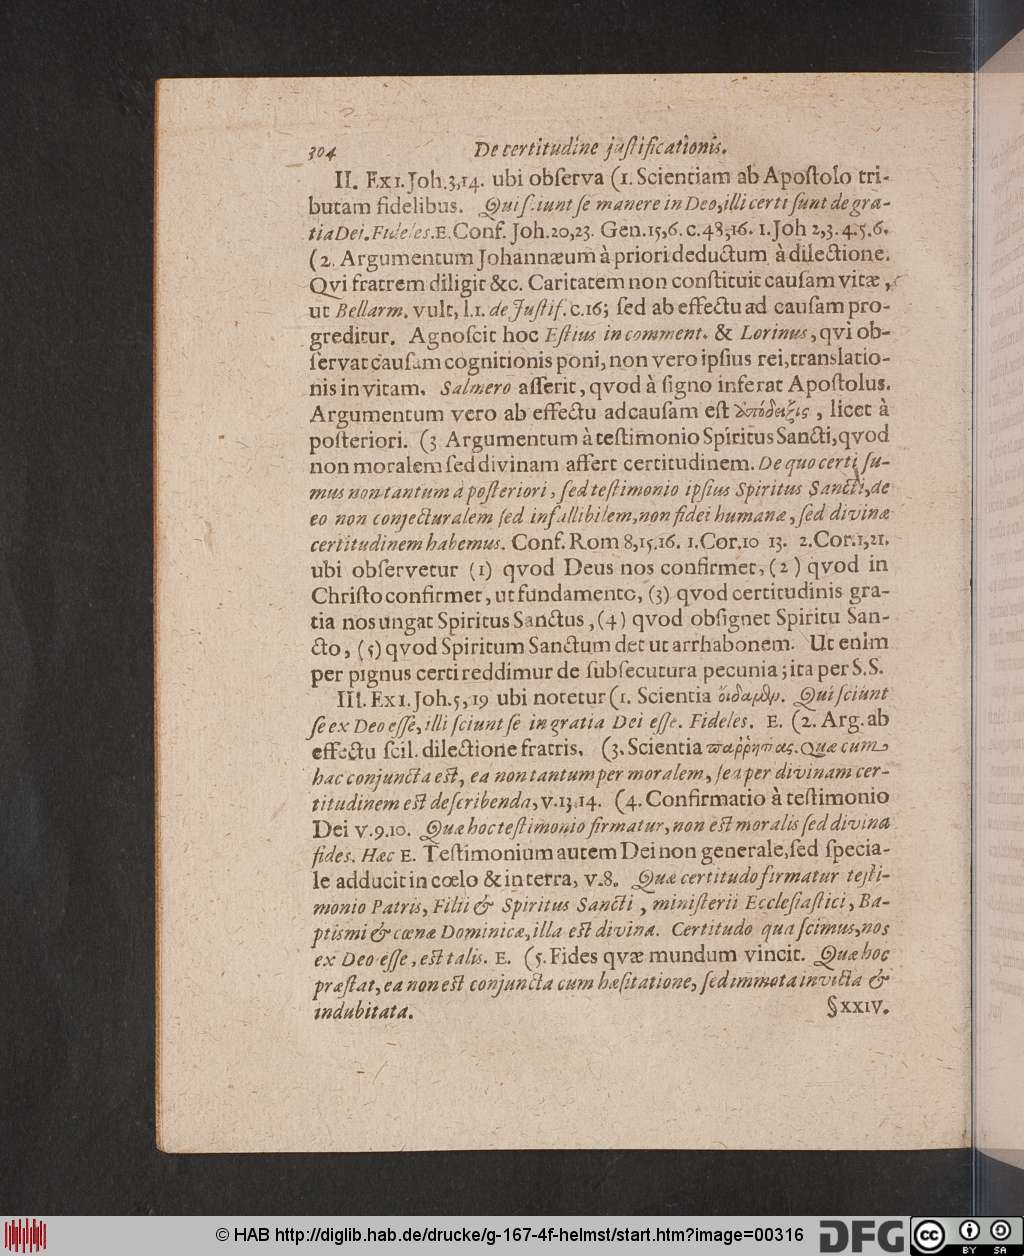 304 De certitudine justificationis.
II. Ex 1. Joh. 3,14. ubi obſerva (1. Scientiam ab Apoſtolo tri-
butam fidelibus. Qui ſciunt ſe manere in Deo, illi certi ſunt de gra-
tia Dei. Fideles. E. Conf. Joh. 20,23. Gen. 15,6. c. 48,16. 1. Joh 2,3. 4. 5. 6.
(2. Argumentum Johannæum à priori deductum à dilectione.
Qvi fratrem diligit &c. Caritatem non conſtituit cauſam vitæ,
ut Bellarm. vult, l. 1. de Juſtif. c. 16; ſed ab effectu ad cauſam pro-
greditur. Agnoſcit hoc Eſtius in comment. & Lorinus, qvi ob-
ſervat cauſam cognitionis poni, non vero ipſius rei, translatio-
nis in vitam. Salmero aſſerit, qvod à ſigno inferat Apoſtolus.
Argumentum vero ab effectu ad cauſam eſt ἀπόδειξις, licet à
poſteriori. (3 Argumentum à teſtimonio Spiritus Sancti, qvod
non moralem ſed divinam affert certitudinem. De quo certi ſu-
mus non tantum à poſteriori, ſed teſtimonio ipſius Spiritus Sancti, de
eo non conjecturalem ſed infallibilem, non fidei humanæ, ſed divinæ
certitudinem habemus. Conf. Rom 8,15.16. 1. Cor. 10 13. 2. Cor. 1,21.
ubi obſervetur (1) qvod Deus nos confirmet, (2) qvod in
Chriſto confirmet, ut fundamento, (3) qvod certitudinis gra-
tia nos ungat Spiritus Sanctus, (4) qvod obſignet Spiritu San-
cto, (5) qvod Spiritum Sanctum det ut arrhabonem. Ut enim
per pignus certi reddimur de ſubſecutura pecunia; ita per S. S.
III. Ex 1. Joh. 5, 19 ubi notetur (1. Scientia οἴδαμεν. Qui ſciunt
ſe ex Deo eſſe, illi ſciunt ſe in gratia Dei eſſe. Fideles. E. (2. Arg. ab
effectu ſcil. dilectione fratris. (3. Scientia παῤῥησίας. Quæ cum
hac conjuncta eſt, ea non tantum per moralem, ſed per divinam cer-
titudinem eſt deſcribenda, v. 13. 14. (4. Confirmatio à teſtimonio
Dei v. 9. 10. Quæ hoc teſtimonio firmatur, non eſt moralis ſed divina
fides. Hæc E. Teſtimonium autem Dei non generale, ſed ſpecia-
le adducit in cœlo & in terra, v. 8. Quæ certitudo firmatur teſti-
monio Patris, Filii & Spiritus Sancti, miniſterii Eccleſiaſtici, Ba-
ptismi & cœnæ Dominicæ, illa eſt divina. Certitudo qua ſcimus, nos
ex Deo eſſe, eſt talis. E. (5. Fides qvæ mundum vincit. Quæ hoc
præſtat, ea non eſt conjuncta cum hæſitatione, ſed immota invicta &
indubitata. § XXIV.
© HAB http://diglib.hab.de/drucke/g-167-4f-helmst/start.htm?image=00316
DFG
cc
BY SA